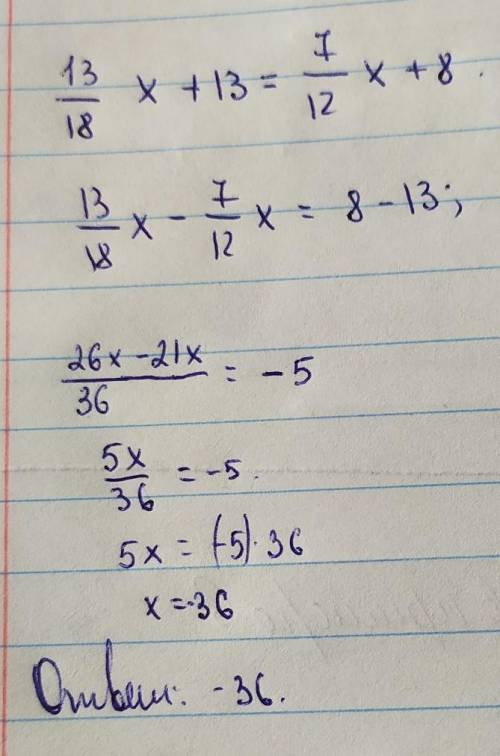 13/18 x + 13 = 7/12 x + 8.
13/18 x - 7/12 x = 8 - 13;
26x - 21x / 36 = -5
5x/36 = -5.
5x = (-5) · 36
x = -36
Ответ: -36.